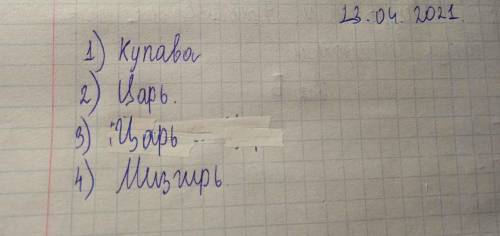 13.04.2021.
1) Купава
2) Царь.
3) Царь
4) Мизгирь